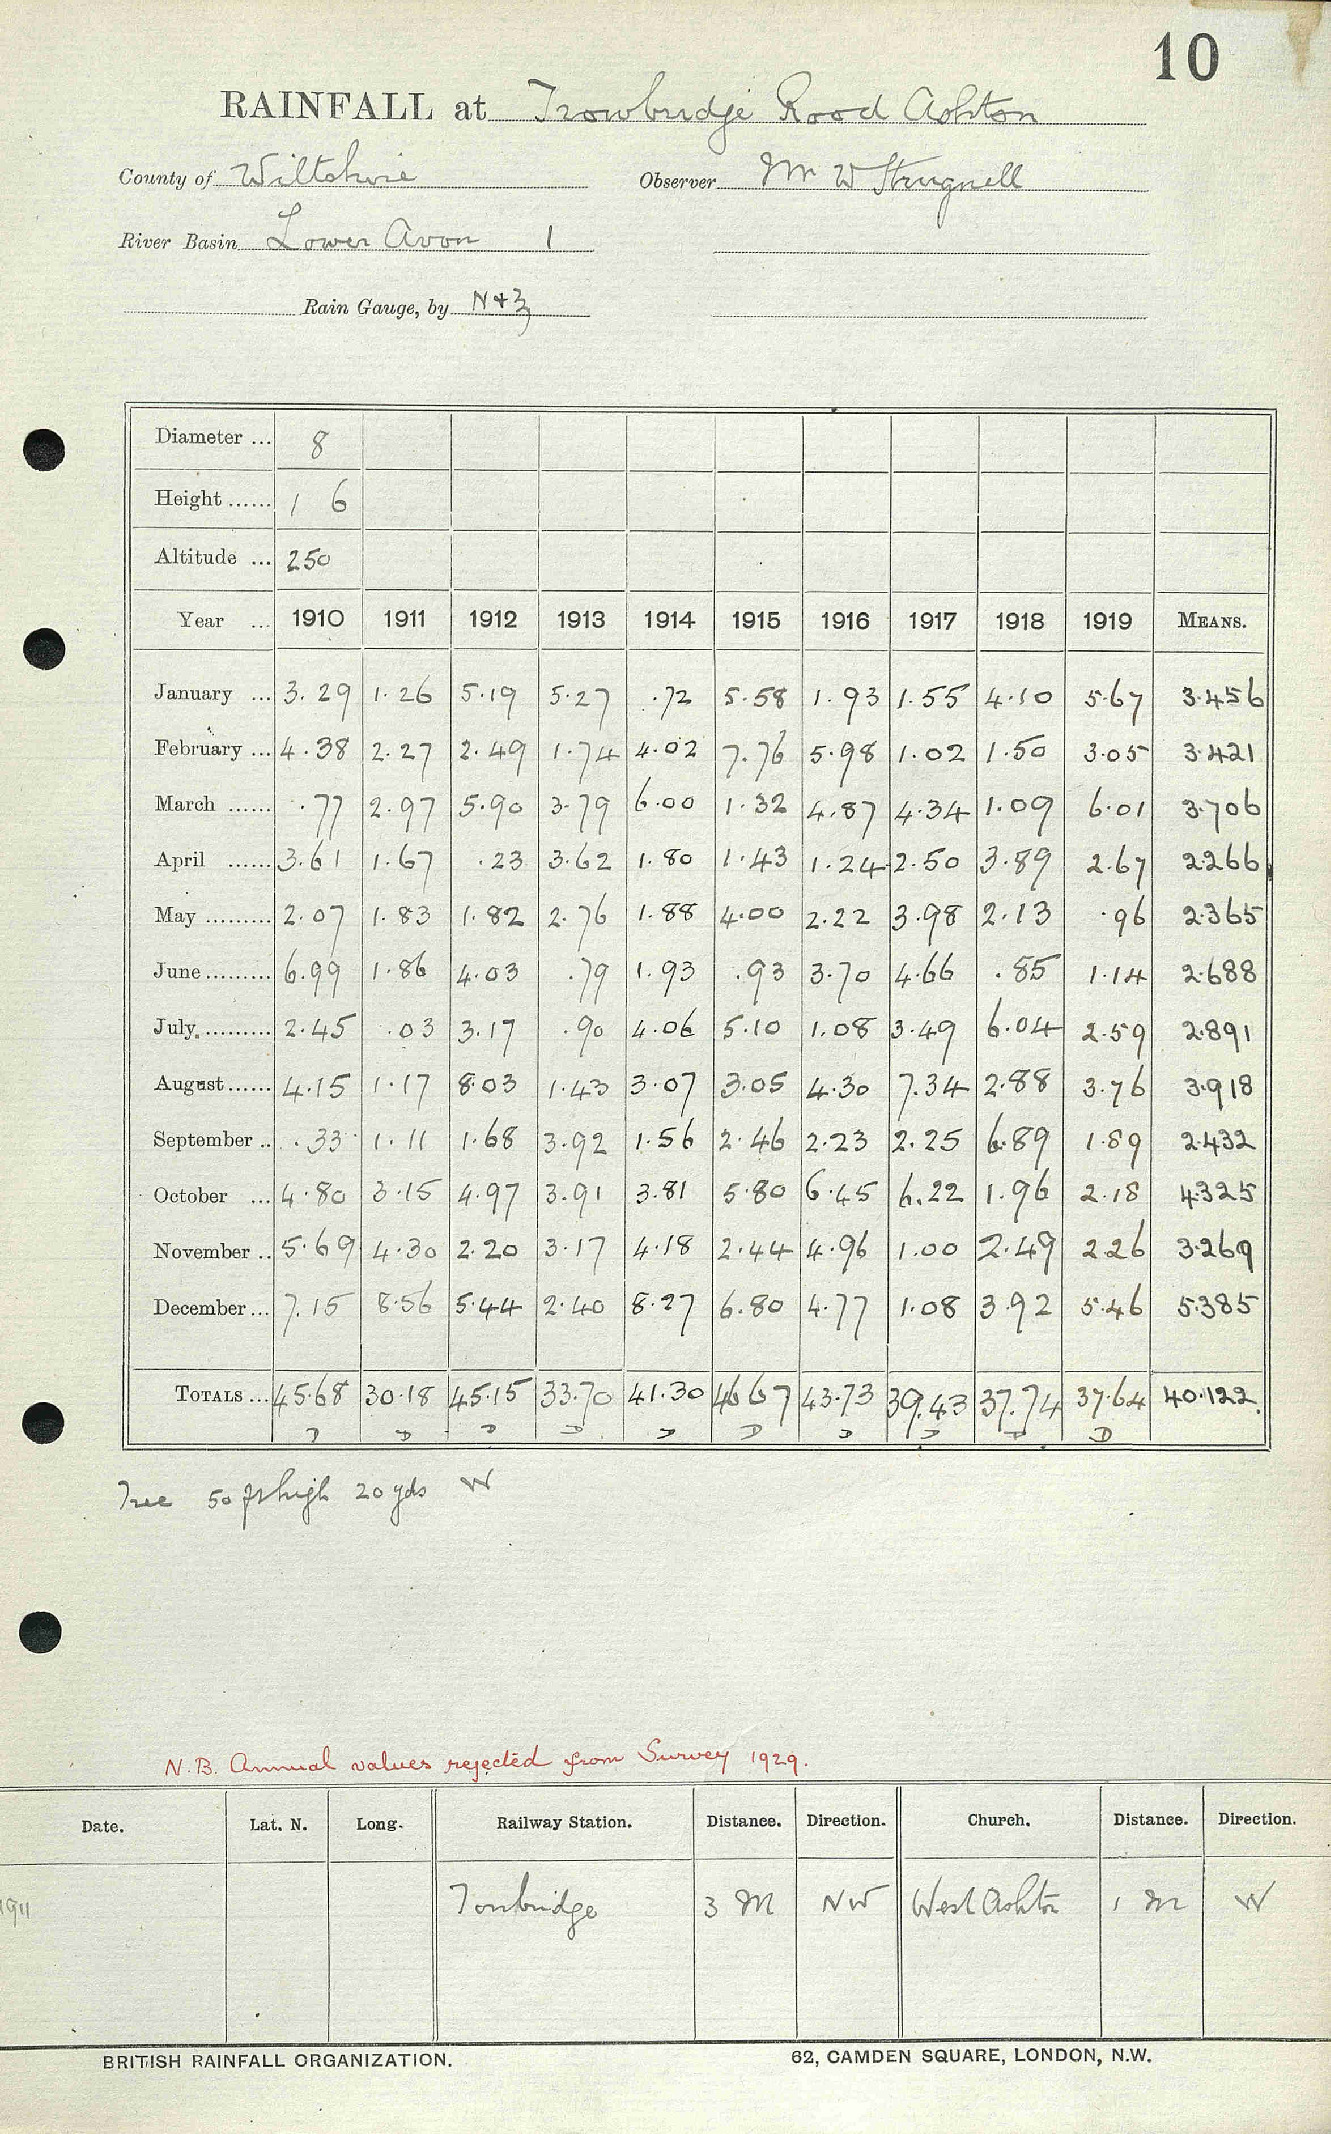 10
RAINFALL at Trowbridge Rood Ashton
County of Wiltshire Observer Mr W Strugnell
River Basin Lower Avon 1
Rain Gauge, by N+Z
Diameter ... 8
Height ...... 1 6
Altitude ... 250
Year ... 1910 1911 1912 1913 1914 1915 1916 1917 1918 1919 MEANS.
January ... 3.29 1.26 5.19 5.27 .72 5.58 1.93 1.55 4.10 5.67 3.456
February ... 4.38 2.27 2.49 1.74 4.02 7.76 5.98 1.02 1.50 3.05 3.421
March ...... .77 2.97 5.90 3.79 6.00 1.32 4.87 4.34 1.09 6.01 3.706
April ...... 3.61 1.67 .23 3.62 1.80 1.43 1.24 2.50 3.89 2.67 2.266
May ......... 2.07 1.83 1.82 2.76 1.88 4.00 2.22 3.98 2.13 .96 2.365
June ......... 6.99 1.86 4.03 .79 1.93 .93 3.70 4.66 .85 1.14 2.688
July ......... 2.45 .03 3.17 .90 4.06 5.10 1.08 3.49 6.04 2.59 2.891
August ...... 4.15 1.17 8.03 1.43 3.07 3.05 4.30 7.34 2.88 3.76 3.918
September .. .33 1.11 1.68 3.92 1.56 2.46 2.23 2.25 6.89 1.89 2.432
October ... 4.80 3.15 4.97 3.91 3.81 5.80 6.45 6.22 1.96 2.18 4.325
November .. 5.69 4.30 2.20 3.17 4.18 2.44 4.96 1.00 2.49 2.26 3.269
December ... 7.15 8.56 5.44 2.40 8.27 6.80 4.77 1.08 3.92 5.46 5.385
TOTALS ... 45.68 30.18 45.15 33.70 41.30 46.67 43.73 39.43 37.74 37.64 40.122
D D D D D D D D D D
Tree 50 ft high 20 yds W
N.B. Annual values rejected from Survey 1929.
Date. Lat. N. Long. Railway Station. Distance. Direction. Church. Distance. Direction.
1911 Towbridge 3 M NW West Ashton 1 M W
BRITISH RAINFALL ORGANIZATION. 62, CAMDEN SQUARE, LONDON, N.W.